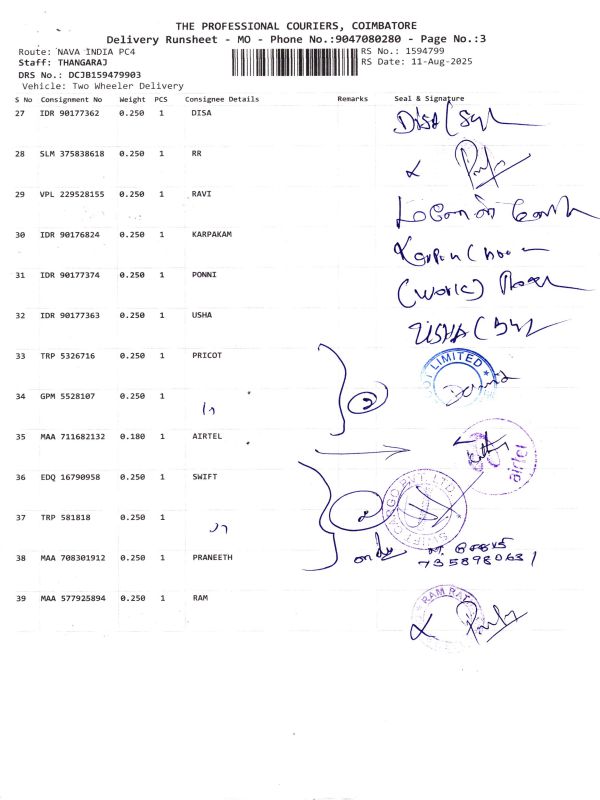 THE PROFESSIONAL COURIERS, COIMBATORE
Delivery Runsheet - MO - Phone No.:9047080280 - Page No.:3
Route: NAVA INDIA PC4 RS No.: 1594799
Staff: THANGARAJ RS Date: 11-Aug-2025
DRS No.: DCJB159479903
Vehicle: Two Wheeler Delivery
S No Consignment No Weight PCS Consignee Details Remarks Seal & Signature
27 IDR 90177362 0.250 1 DISA DISA
28 SLM 375838618 0.250 1 RR
29 VPL 229528155 0.250 1 RAVI
30 IDR 90176824 0.250 1 KARPAKAM
31 IDR 90177374 0.250 1 PONNI (work)
32 IDR 90177363 0.250 1 USHA USHA
33 TRP 5326716 0.250 1 PRICOT LIMITED
34 GPM 5528107 0.250 1 2
35 MAA 711682132 0.180 1 AIRTEL airtel
36 EDQ 16790958 0.250 1 SWIFT SWIFT CARGO PVT. LTD.
37 TRP 581818 0.250 1 2
38 MAA 708301912 0.250 1 PRANEETH
7358980631
39 MAA 577925894 0.250 1 RAM RAM